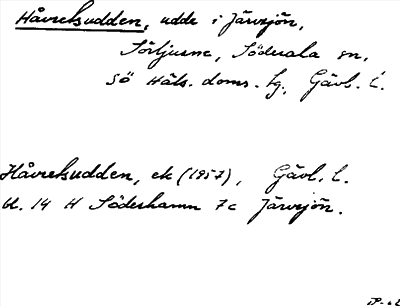 Håvrelsudden, udde i Järvsjön,
Sörljusne, Söderala sn,
Sö Häls. doms. tg, Gävl. l.
Håvrelsudden, ek (1957), Gävl. l.
bl. 14 H Söderhamn 7c Järvsjön.